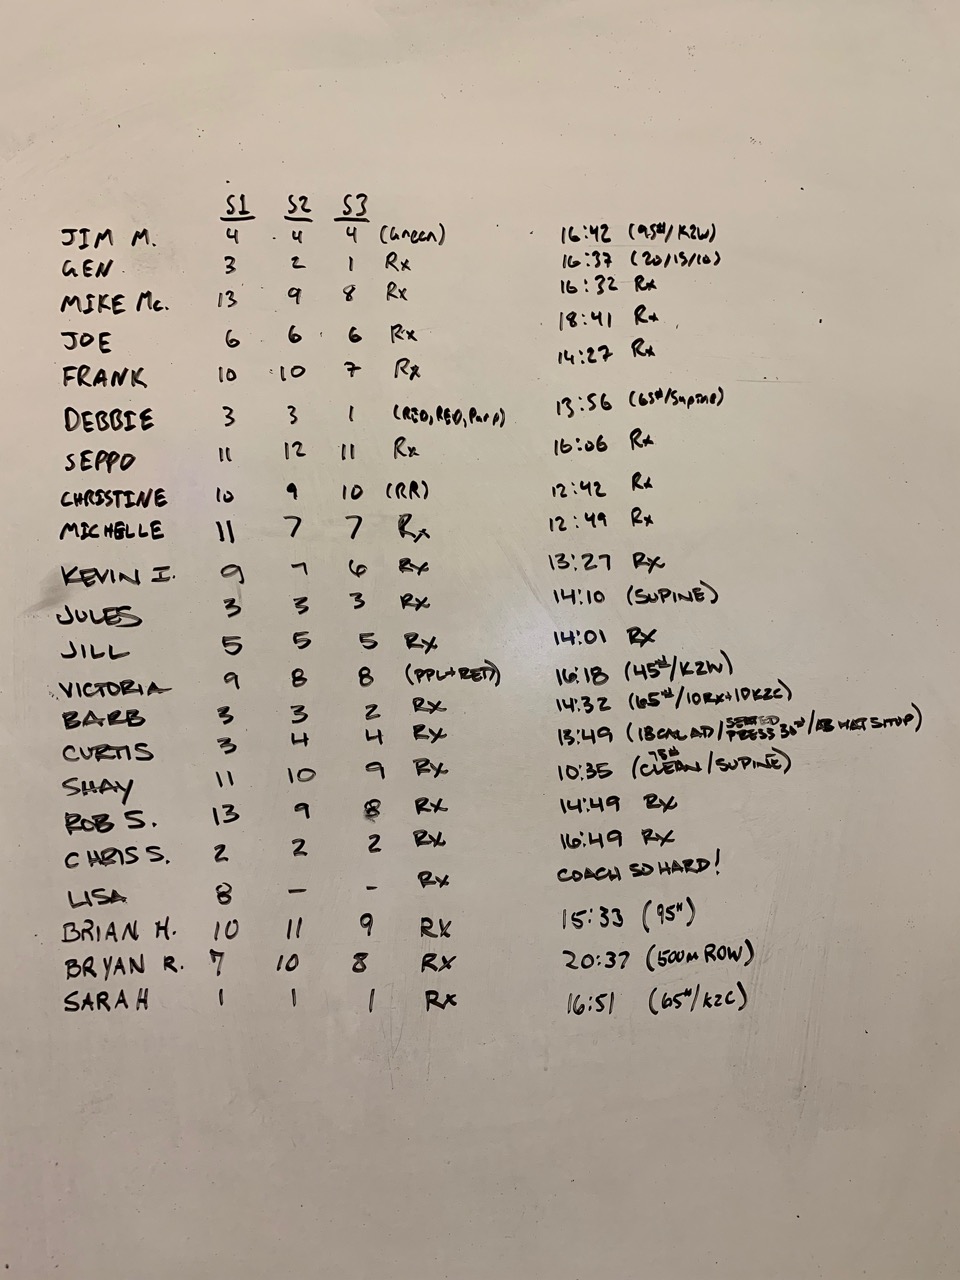 S1 S2 S3
JIM M. 4 4 4 (Green) 16:42 (95#/K2W)
GEN 3 2 1 Rx 16:37 (20/15/10)
MIKE Mc. 13 9 8 Rx 16:32 Rx
JOE 6 6 6 Rx 18:41 Rx
FRANK 10 10 7 Rx 14:27 Rx
DEBBIE 3 3 1 (RED, RED, Purp) 13:56 (63#/Supine)
SEPPO 11 12 11 Rx 16:06 Rx
CHRISTINE 10 9 10 (RR) 12:42 Rx
MICHELLE 11 7 7 Rx 12:49 Rx
KEVIN I. 9 7 6 Rx 13:27 Rx
JULES 3 3 3 Rx 14:10 (SUPINE)
JILL 5 5 5 Rx 14:01 Rx
VICTORIA 9 8 8 (PPL+RED) 16:18 (45#/K2W)
BARB 3 3 2 Rx 14:32 (65#/10RX+10K2C)
CURTIS 3 4 4 Rx 13:49 (18 CAL AD/SEATED PRESS 30#/AB MAT SITUP)
SHAY 11 10 9 Rx 10:35 (75# CLEAN/SUPINE)
ROB S. 13 9 8 Rx 14:49 Rx
CHRIS S. 2 2 2 Rx 16:49 Rx
LISA 8 - - Rx COACH SO HARD!
BRIAN H. 10 11 9 RX 15:33 (95#)
BRYAN R. 7 10 8 RX 20:37 (500m ROW)
SARAH 1 1 1 Rx 16:51 (65#/K2C)